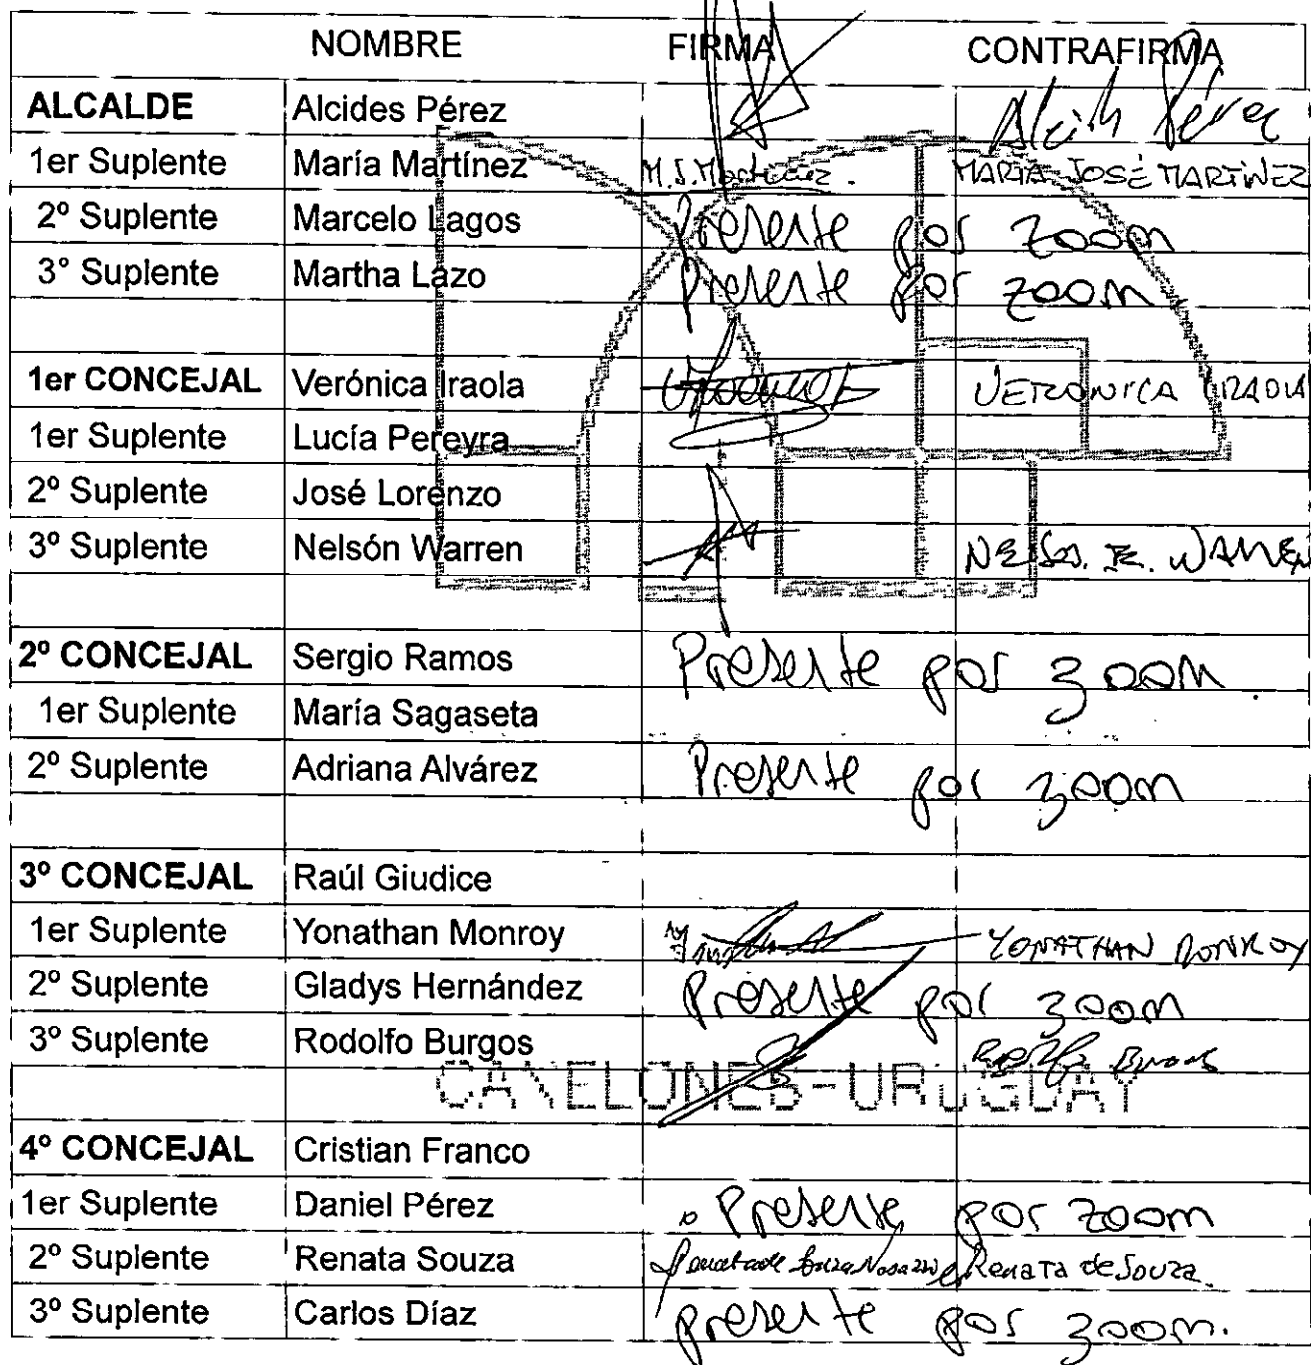 NOMBRE FIRMA CONTRAFIRMA
ALCALDE Alcides Pérez Pérez
1er Suplente María Martínez M.J. Martínez. MARÍA JOSÉ MARTÍNEZ
2º Suplente Marcelo Lagos Presente por zoom
3° Suplente Martha Lazo Presente por zoom
1er CONCEJAL Verónica Iraola VERONICA IRAOLA
1er Suplente Lucía Pereyra
2º Suplente José Lorenzo
3º Suplente Nelsón Warren
2º CONCEJAL Sergio Ramos Presente por zoom.
1er Suplente María Sagaseta
2º Suplente Adriana Alvárez Presente por zoom
3º CONCEJAL Raúl Giudice
1er Suplente Yonathan Monroy YONATHAN MONROY
2º Suplente Gladys Hernández Presente por zoom
3º Suplente Rodolfo Burgos
CANELONES-URUGUAY
4º CONCEJAL Cristian Franco
1er Suplente Daniel Pérez Presente por zoom
2º Suplente Renata Souza Renata de Souza.
3º Suplente Carlos Díaz presente por zoom.